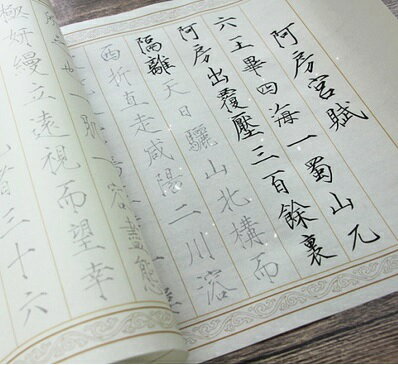 阿房宮賦
六王畢四海一蜀山元
阿房出覆壓三百餘裏
隔離天日驪山北構而
西折直走咸陽二川溶
一容盡態
極妍縵立遠視而望幸
者三十六